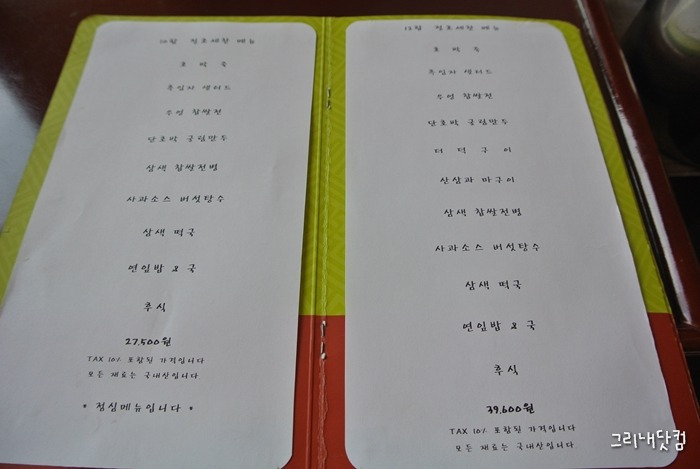 12월 정호세찬 메뉴
호박죽
흑임자 샐러드
수영 찹쌀전
단호박 굴림만두
삼색 찹쌀전병
사과소스 버섯탕수
삼색 떡국
연잎밥 & 국
후식
27,500원
TAX 10% 포함된 가격입니다
모든 재료는 국내산입니다
* 점심메뉴입니다 *
12월 정호세찬 메뉴
호박죽
흑임자 샐러드
수영 찹쌀전
단호박 굴림만두
더덕구이
산삼과 마구이
삼색 찹쌀전병
사과소스 버섯탕수
삼색 떡국
연잎밥 & 국
후식
39,600원
TAX 10% 포함된 가격입니다
모든 재료는 국내산입니다
그리내닷컴